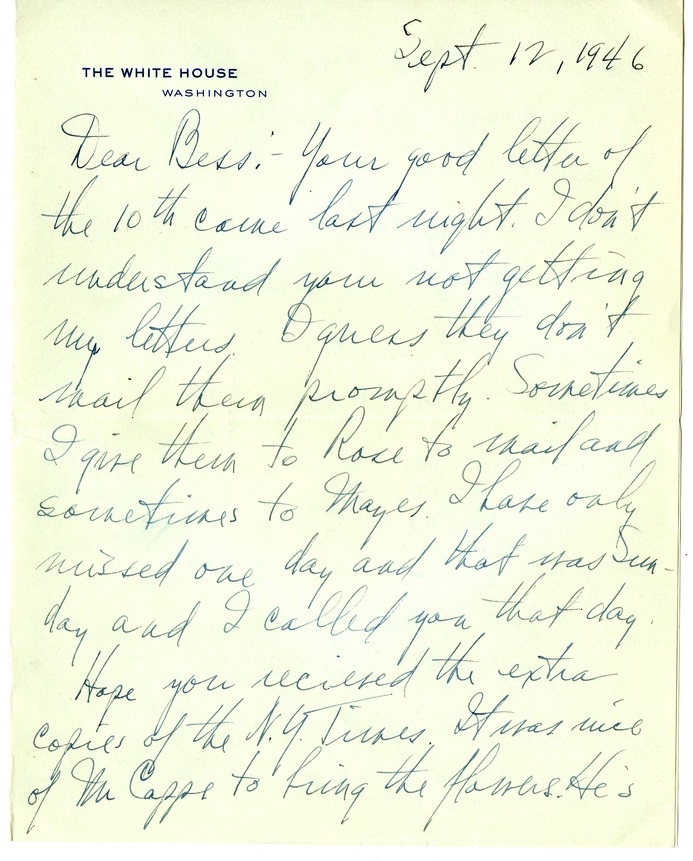 Sept. 12, 1946
THE WHITE HOUSE
WASHINGTON
Dear Bess:- Your good letter of
the 10th came last night. I don't
understand your not getting
my letters. I guess they don't
mail them promptly. Sometimes
I give them to Rose to mail and
sometimes to Mayes. I have only
missed one day and that was Sun-
day and I called you that day.
Hope you recieved the extra
copies of the N.Y. Times. It was nice
of Mr to bring the flowers. He's